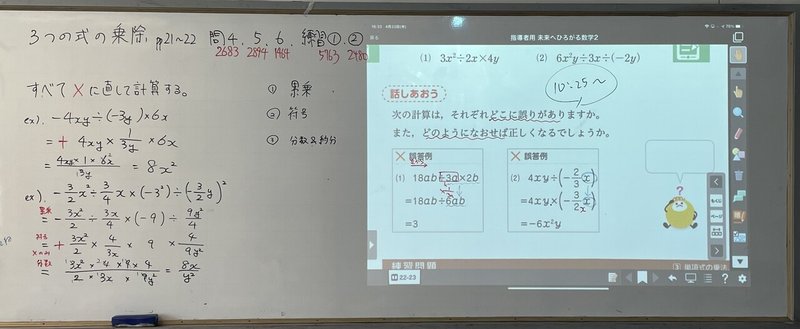 3つの式の乗除 pp21~22 問4. 5. 6. 練習①.②
2683 2894 1964 5963 2480
すべて×に直して計算する。
① 累乗
② 符号
③ 分数&約分
ex). -4xy÷(-3y)×6x
= + 4xy × 1/3y × 6x
= 4xy×1×6x/3y = 8x²
ex). -3/2x²÷3/4x×(-3²)÷(-3/2y)²
累乗 = -3x²/2 ÷ 3x/4 ×(-9)÷ 9y²/4
符号 = + 3x²/2 × 4/3x × 9 × 4/9y²
分数 = 3x²×4×9×4/2×3x×9y² = 8x/y²
指導者用 未来へひろがる数学2
(1) 3x²÷2x×4y (2) 6x²y÷3x÷(-2y)
10:25~
話しあおう
次の計算は、それぞれどこに誤りがありますか。
また、どのようになおせば正しくなるでしょうか。
× 誤答例
(1) 18ab÷3a×2b
=18ab÷6ab
=3
× 誤答例
(2) 4xy÷(-2/3x)
=4xy×(-3/2x)
=-6x²y
?
練習問題
3 単項式の乗法
22-23